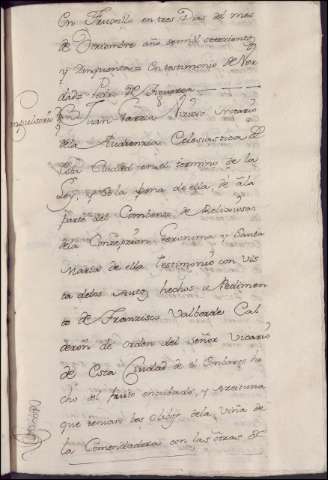 En Truxillo en tres Dias del mes
de Diziembre año de mil setecientos
y cinquenta En testimonio de Ver
dad Pedro de
Juan Garzia Notario
de la Audienzia Eclesiastica de
esta Ciudad en el termino de la
Ley, y de la pena de ella, de a la
parte del Combento de Religiosas
de la Concepzion Geronima y Santa
Maria de ella testimonio con vis
ta de los Autos hechos a Pedimen
to de Francisco Valberde Cal
deron de orden del Señor Vicario
de Esta Ciudad de el Embargo he
cho el fruto encubado, y Azeituna
que tenian los Olibos de la Viña de
la Comendadora con las otras